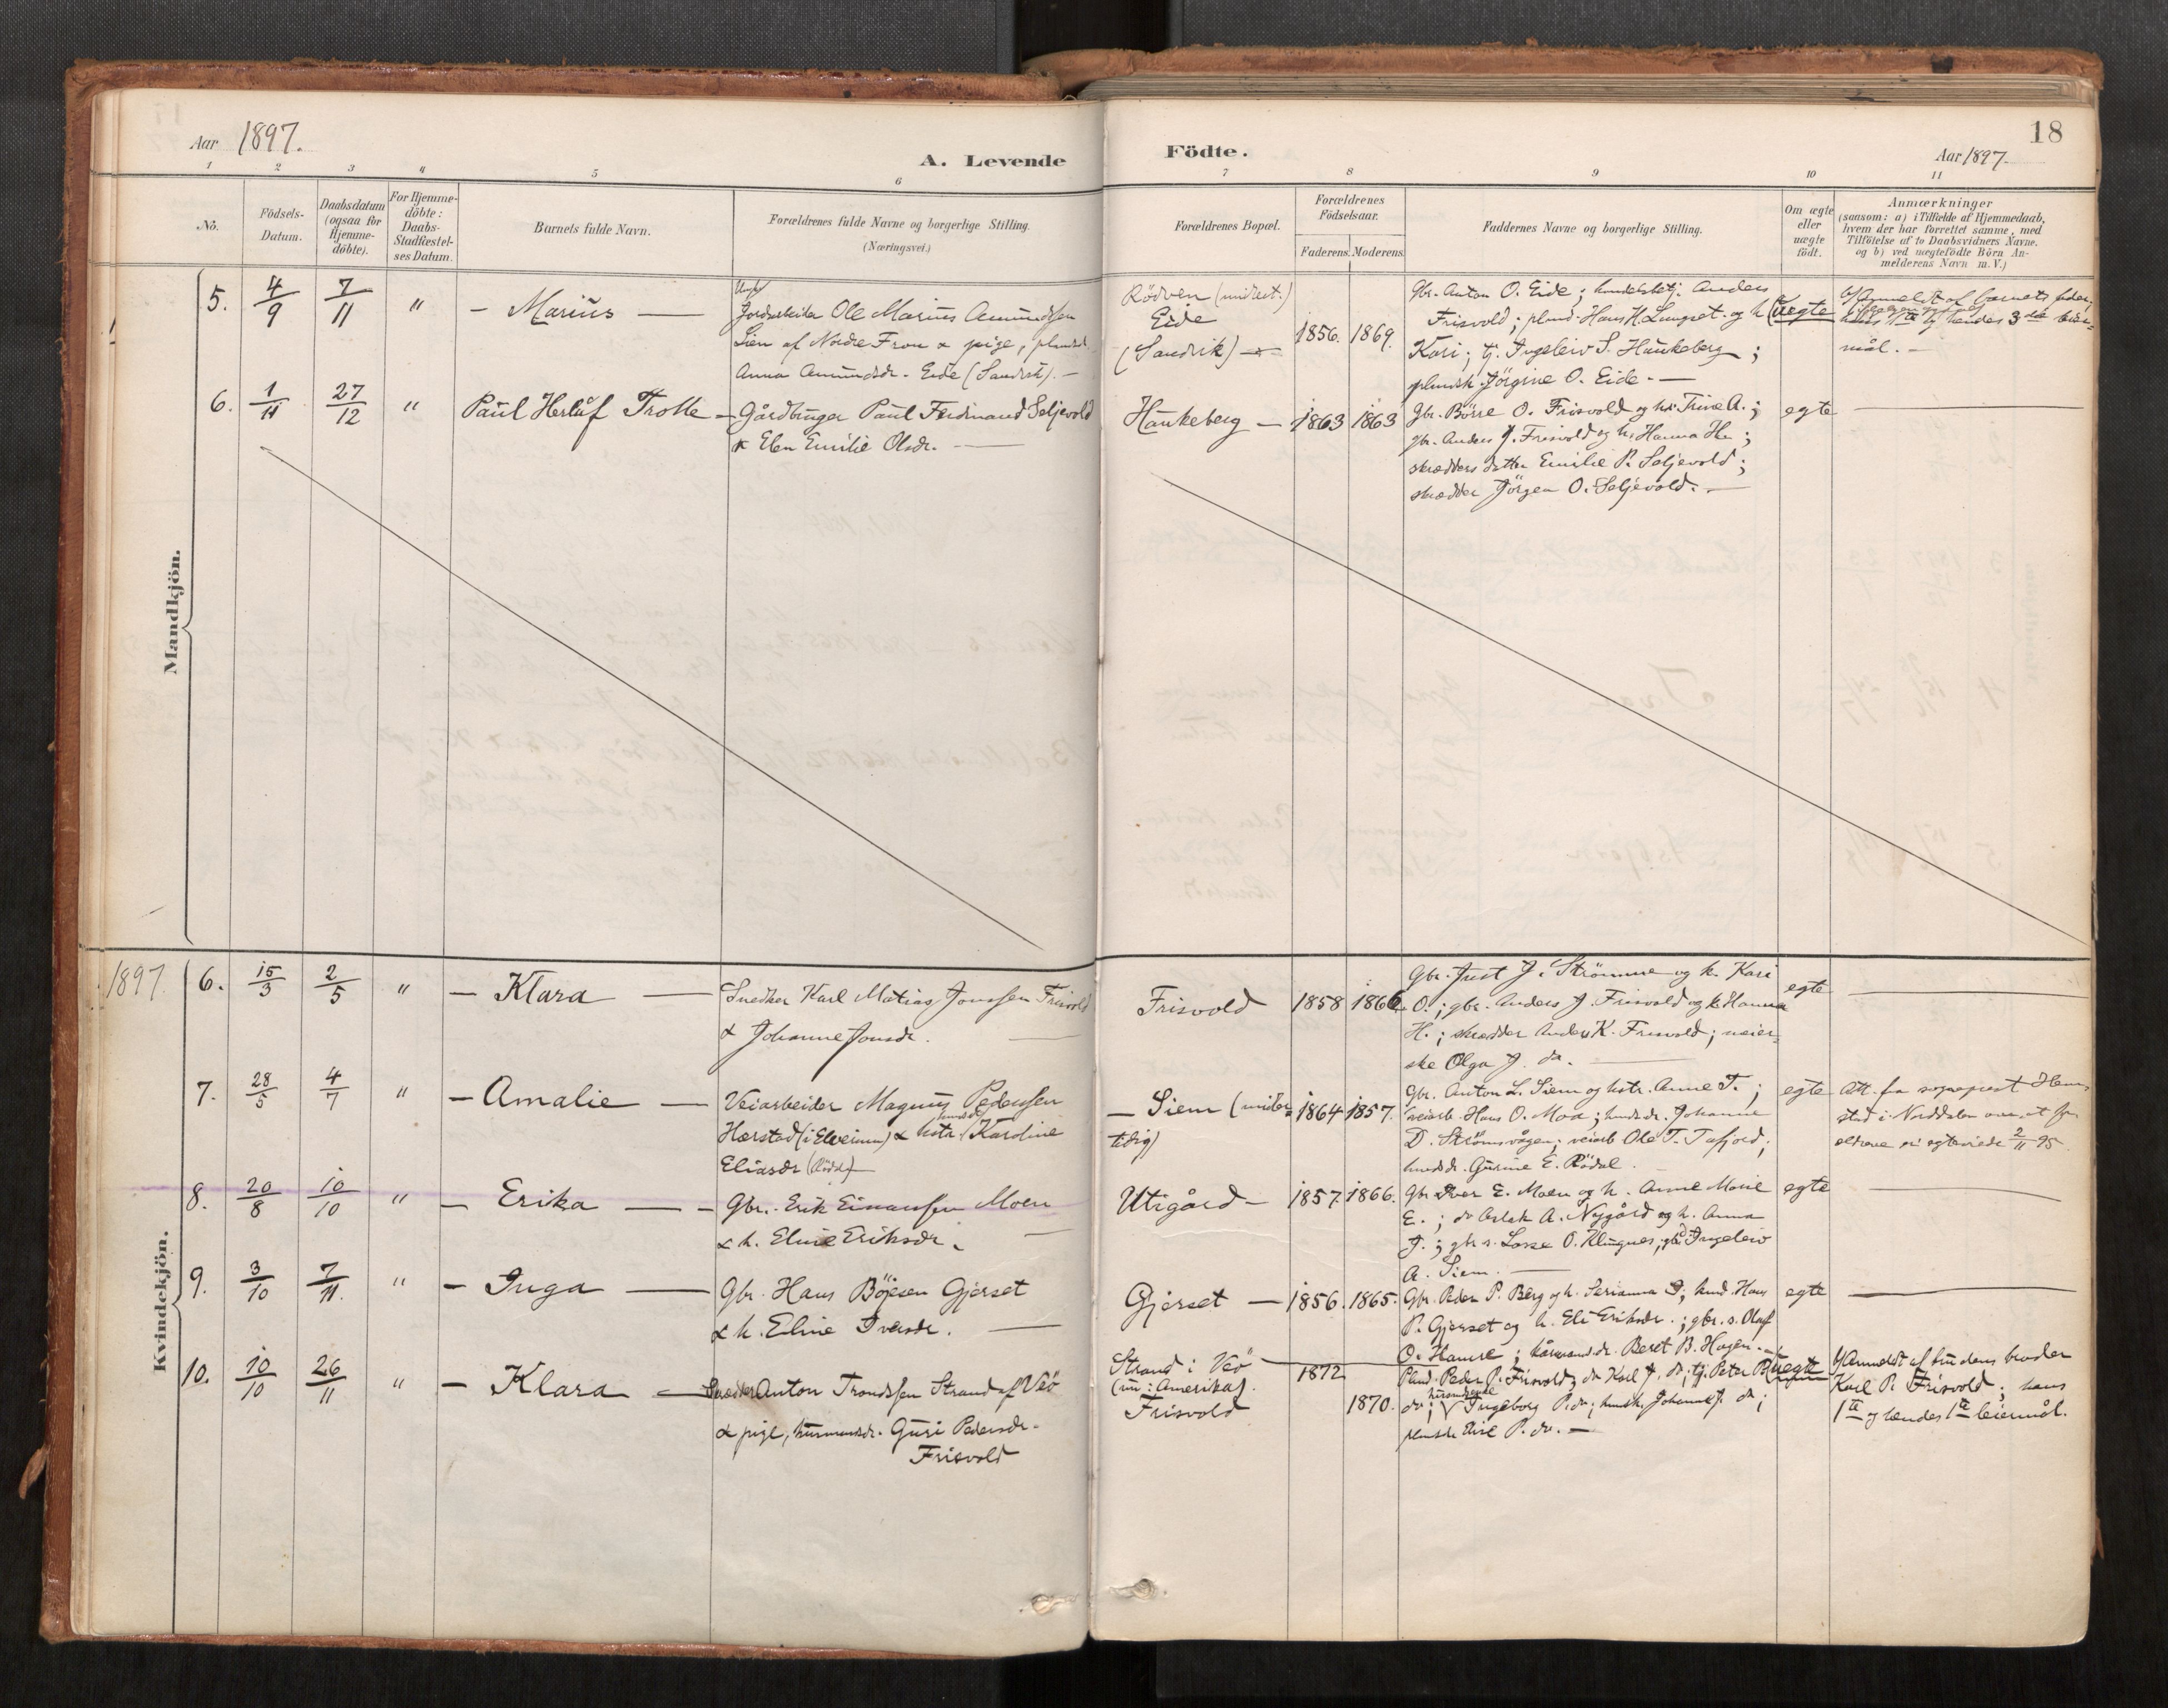 Aar 1897.
A. Levende
Födte.
Aar 1897.
18
1 2 3 4 5 6 7 8 9 10 11
No.
Födsels-
Datum.
Daabsdatum
(ogsaa for
Hjemme-
döbte).
For Hjemme-
döbte:
Daabs-
Stadfæstel-
ses Datum.
Barnets fulde Navn.
Forældrenes fulde Navne og borgerlige Stilling.
(Næringsvei.)
Forældrenes Bopæl.
Forældrenes
Födselsaar.
Faderens. Moderens.
Faddernes Navne og borgerlige Stilling.
Om ægte
eller
uægte
födt.
Anmærkninger
(saasom: a) i Tilfælde af Hjemmedaab,
hvem der har forrettet samme, med
Tilföielse af to Daabsvidners Navne.
og b) ved uægtefödte Börn An-
melderens Navn m. V.)
Mandkjön.
5. 4/9 7/11 " - Marius —
Ungk.
Jordarbeider Ole Marius Amundsen
Lien af Nordre Fron & pige,
Anna Amundsdr. Eide (Sandvik). —
Rödven (midlert.)
Eide
(Sandvik) —
1856. 1869.
Gbr. Anton O. Eide; Anders
Frisvold; Hans H. Lungset og h
Kari; tj. Ingeleiv S. Haukeberg;
Jörgine O. Eide. —
uegte
b) Anmeldt af barnets fader;
hans 1ste og hendes 3die leier-
mål. —
6. 1/11 27/12 " Paul Herluf Trolle —
Gårdbruger Paul Ferdinand Seljevold
& Elen Emilie Olsdr. —
Haukeberg — 1863 1863
Gbr. Börre O. Frisvold og h. Trine A.;
gbr. Anders J. Frisvold og h. Hanna H.;
skrædders datter Emilie P. Seljevold;
skrædder Jörgen O. Seljevold. —
egte —
Kvindekjön.
1897 6. 15/3 2/5 " — Klara —
Snedker Karl Matias Jonssen Frisvold
& Johanne Jonsdr. —
Frisvold 1858 1866
Gbr. Just J. Strömme og h. Kari
O.; gbr. Anders J. Frisvold og h. Hanna
H.; skrædder Anders K. Frisvold; meier-
ske Olga J. do. —
egte —
7. 28/5 4/7 " — Amalie —
Veiarbeider Magnus Pedersen
Harstad (i Elverum) & hstr. Karoline
Eliasdr (Rödal) —
— Siem (midler-
tidig)
1864 1857.
Gbr. Anton L. Siem og hstr. Anne T.;
veiarb. Hans O. Moa; Johanne
D. Strömsvågen; veiarb Ole T. Tafjord;
Gurine E. Rödal.
egte
Att. fra sogneprest
i Norddalen om at for-
ældrene er egteviede 2/11 95
8. 20/8 10/10 " — Erika —
Gbr. Erik Einarsen Moen
& h. Eline Eriksdr. —
Utigård — 1857. 1866.
Gbr. Iver E. Moen og h. Anne Marie
E.; do Aslak A. Nygård og h. Anna
J.; gbr s. Lasse O. Klungnes; Ingeleiv
A. Siem. —
egte —
9. 3/10 7/11. " — Inga —
Gbr. Hans Böjesen Gjerset
& h. Eline Iversdr. —
Gjerset — 1856. 1865.
Gbr. Peder P. Berg og h. Serianna S; Hans
P. Gjerset og h. Eli Eriksdr.; gbr. s. Olaf
O. Hamre; Beret B. Hagen. —
egte —
10. 10/10 26/11 " — Klara —
Skrædder Anton Trondssen Strand af Veö
& pige, husmandsdr. Guri Pedersdr.
Frisvold
Strand i Veö
(nu i Amerika)
Frisvold
1872
1870.
Pland. Peder P. Frisvold; do Karl J. do; tj. Peter B
do; Ingeborg P. do; Johanne J. do;
P. do. —
uegte
b) Anmeldt af broder
Karl P. Frisvold; hans
1ste og hendes 1ste leiermål.